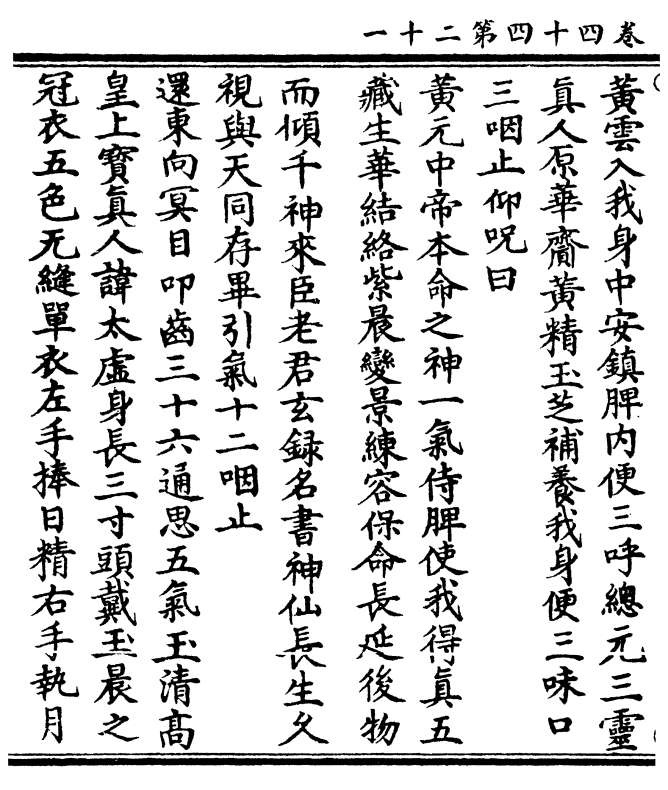 卷四十四第二十一
黃雲入我身中安鎮脾内便三呼總元三靈
真人原華齎黃精玉芝補養我身便三味口
三咽止仰呪曰
黃元中帝本命之神一氣侍脾使我得真五
藏生華結絡紫晨變景練容保命長延後物
而傾千神來臣老君玄録名書神仙長生久
視與天同存畢引氣十二咽止
還東向冥目叩齒三十六通思五氣玉清高
皇上寶真人諱太虛身長三寸頭戴玉晨之
冠衣五色无縫單衣左手捧日精右手執月